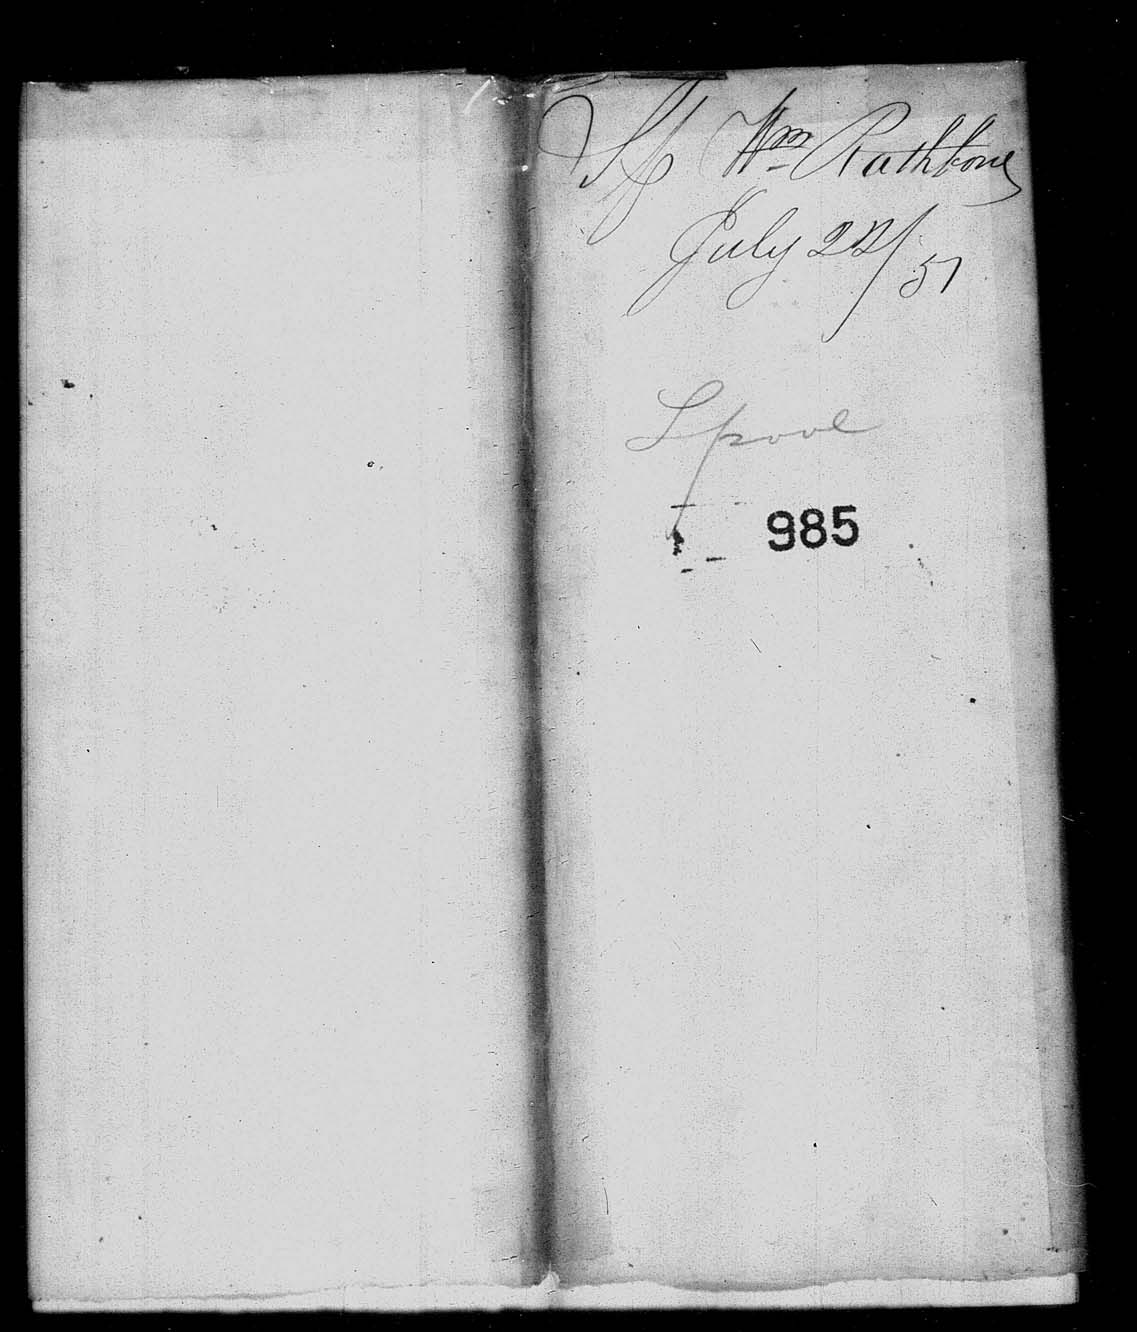 Wm Rathbone
July 22/51
Lpool
985